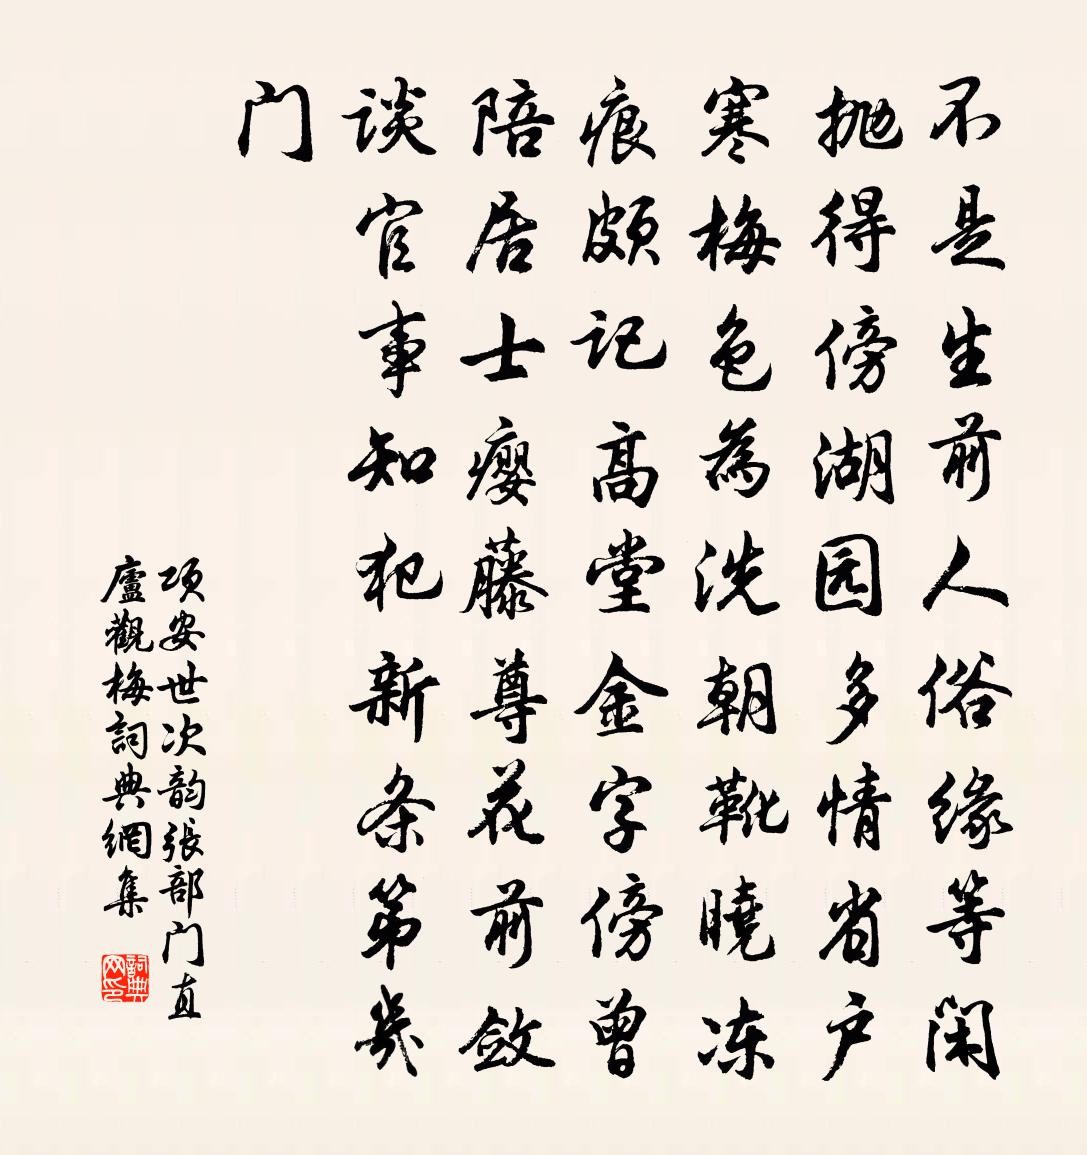 不是生前人俗缘等闲
抛得傍湖园多情省户
寒梅色為洗朝靴曉冻
痕颇记高堂金字傍曾
陪居士瘿藤尊花前敛
谈官事知犯新条第幾
门
项安世次韵張部门直
廬觀梅詞典網集
詞典网印